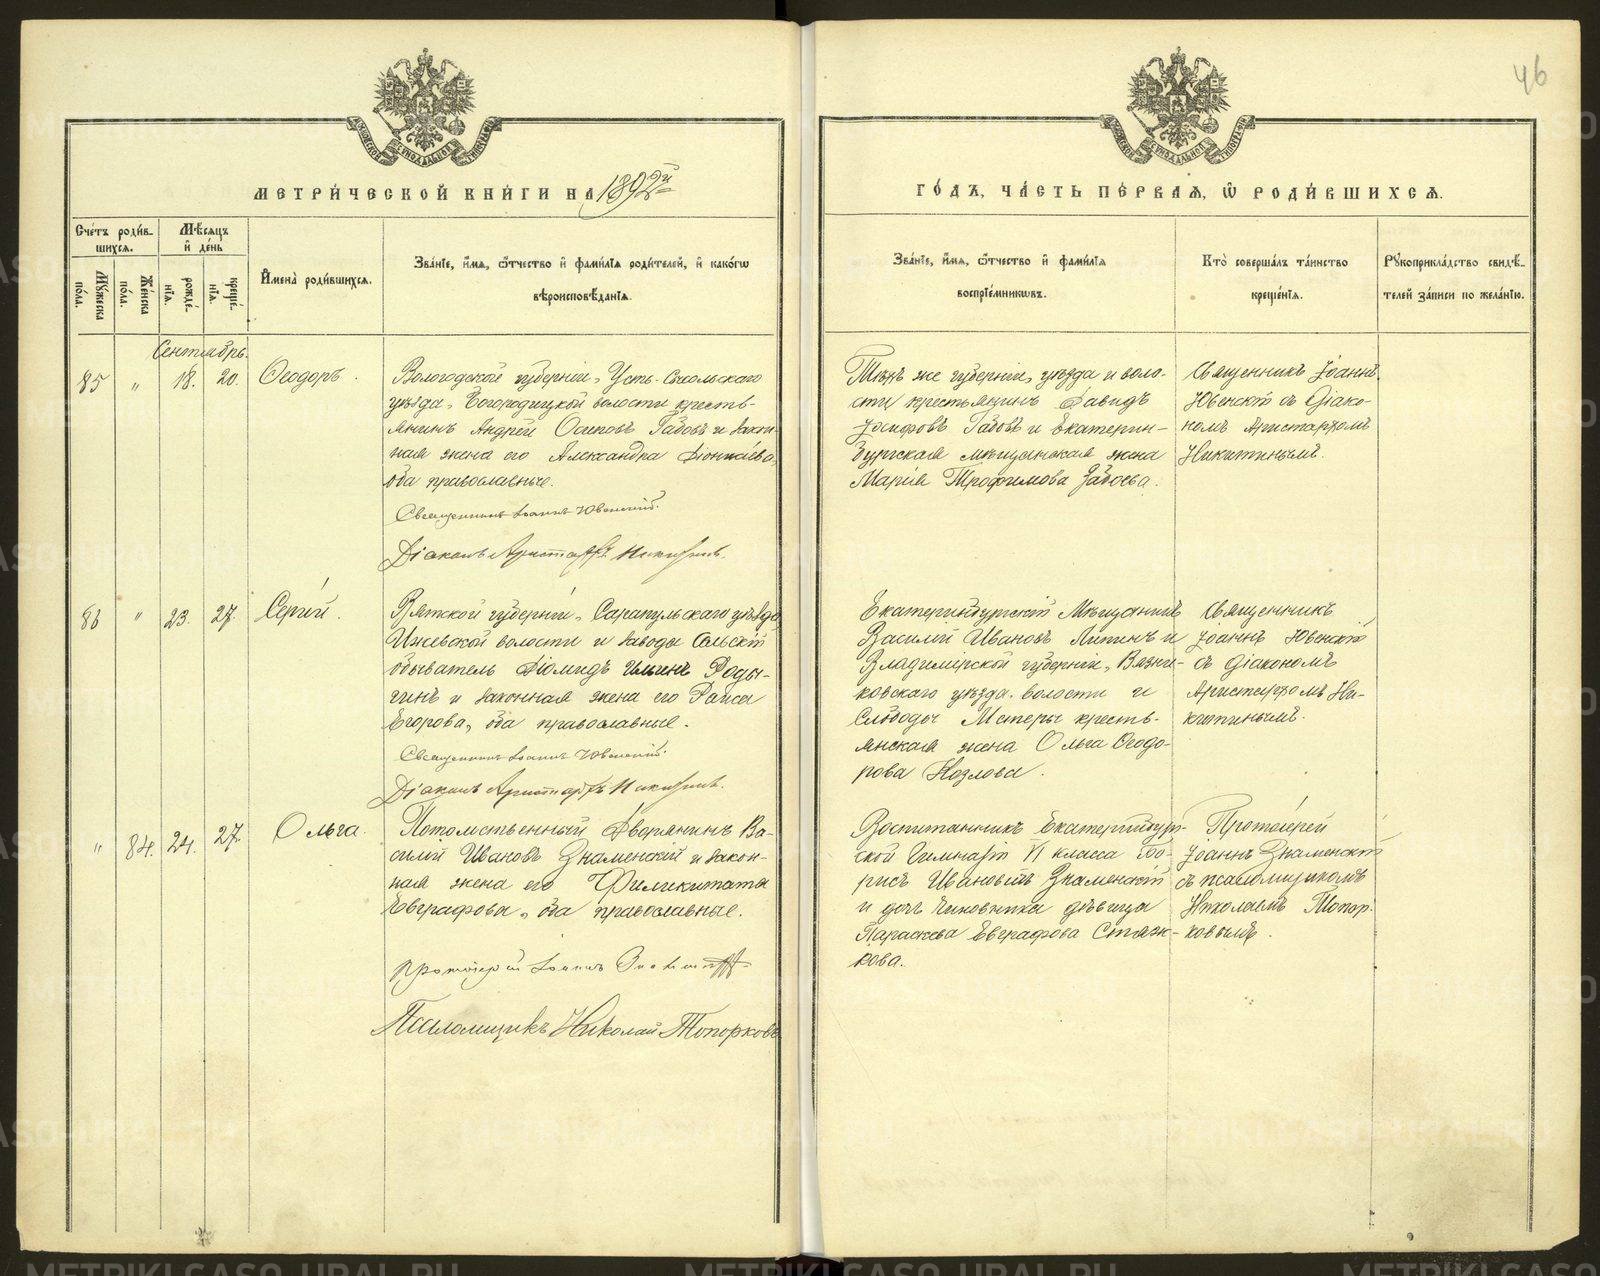 46
МЕТРИ́ЧЕСКОЙ КНИ́ГИ НА 1892й
ГО́ДЪ, ЧА́СТЬ ПЕ́РВАЯ, Ѡ҆ РОДИ́ВШИХСЯ.
Сче́тъ роди́вшихся.
Мѣ́сяцъ и҆ де́нь
Мꙋ́жеска по́ла.
Же́нска по́ла.
рожде́нїя.
креще́нїя.
И҆мена̀ роди́вшихся.
Зва́нїе, и҆́мя, ѻ҆́тчество и҆ фами́лїя роди́телей, и҆ како́гѡ
вѣроисповѣ́данїя.
Зва́нїе, и҆́мя, ѻ҆́тчество и҆ фами́лїя
воспрїе́мникѡвъ.
Кто̀ соверша́лъ та́инство
креще́нїя.
Рꙋкоприкла́дство свидѣ́-
телей за́писи по жела́нїю.
Сентябрь.
85 " 18. 20. Ѳеодоръ.
Вологодской губерніи, Усть-Сысольскаго
уѣзда, Богородицкой волости кресть-
янинъ Андрей Осиповъ Габовъ и закон-
ная жена его Александра
оба православные.
Священникъ Іоаннъ Ювенскій.
Діаконъ Аристархъ Никитинъ.
Тѣхъ же губерніи, уѣзда и воло-
сти крестьянинъ Давидъ
Іосифовъ Габовъ и Екатерин-
бургская мѣщанская жена
Марія Трофимова Забоева.
Священникъ Іоаннъ
Ювенскій съ Діако-
номъ Аристархомъ
Никитинымъ.
86 " 23. 27. Сергій.
Вятской губерніи, Сарапульскаго уѣзда
Ижевской волости и завода Сельскій
обыватель Діомидъ Ильинъ Роды-
гинъ и законная жена его Раиса
Егорова, оба православные.
Священникъ Іоаннъ Ювенскій.
Діаконъ Аристархъ Никитинъ.
Екатеринбургскій Мѣщанинъ
Василій Ивановъ Липинъ и
Владимірской губерніи, Вязни-
ковскаго уѣзда, волости и
Слободы Мстеры кресть-
янская жена Ольга Ѳеодо-
рова Козлова.
Священникъ
Іоаннъ Ювенскій
съ Діакономъ
Аристархомъ Ни-
китинымъ.
" 84. 24. 27. Ольга.
Потомственный Дворянинъ Ва-
силій Ивановъ Знаменскій и закон-
ная жена его Филикитата
Евграфова, оба православные.
Протоіерей Іоаннъ Знаменскій
Псаломщикъ Николай Топорковъ
Воспитанникъ Екатеринбург-
ской Гимназіи VI класса Бо-
рисъ Ивановичъ Знаменскій
и дочь чиновника дѣвица
Параскева Евграфова Стяж-
кова.
Протоіерей
Іоаннъ Знаменскій
съ псаломщикомъ
Николаемъ Топор-
ковымъ.